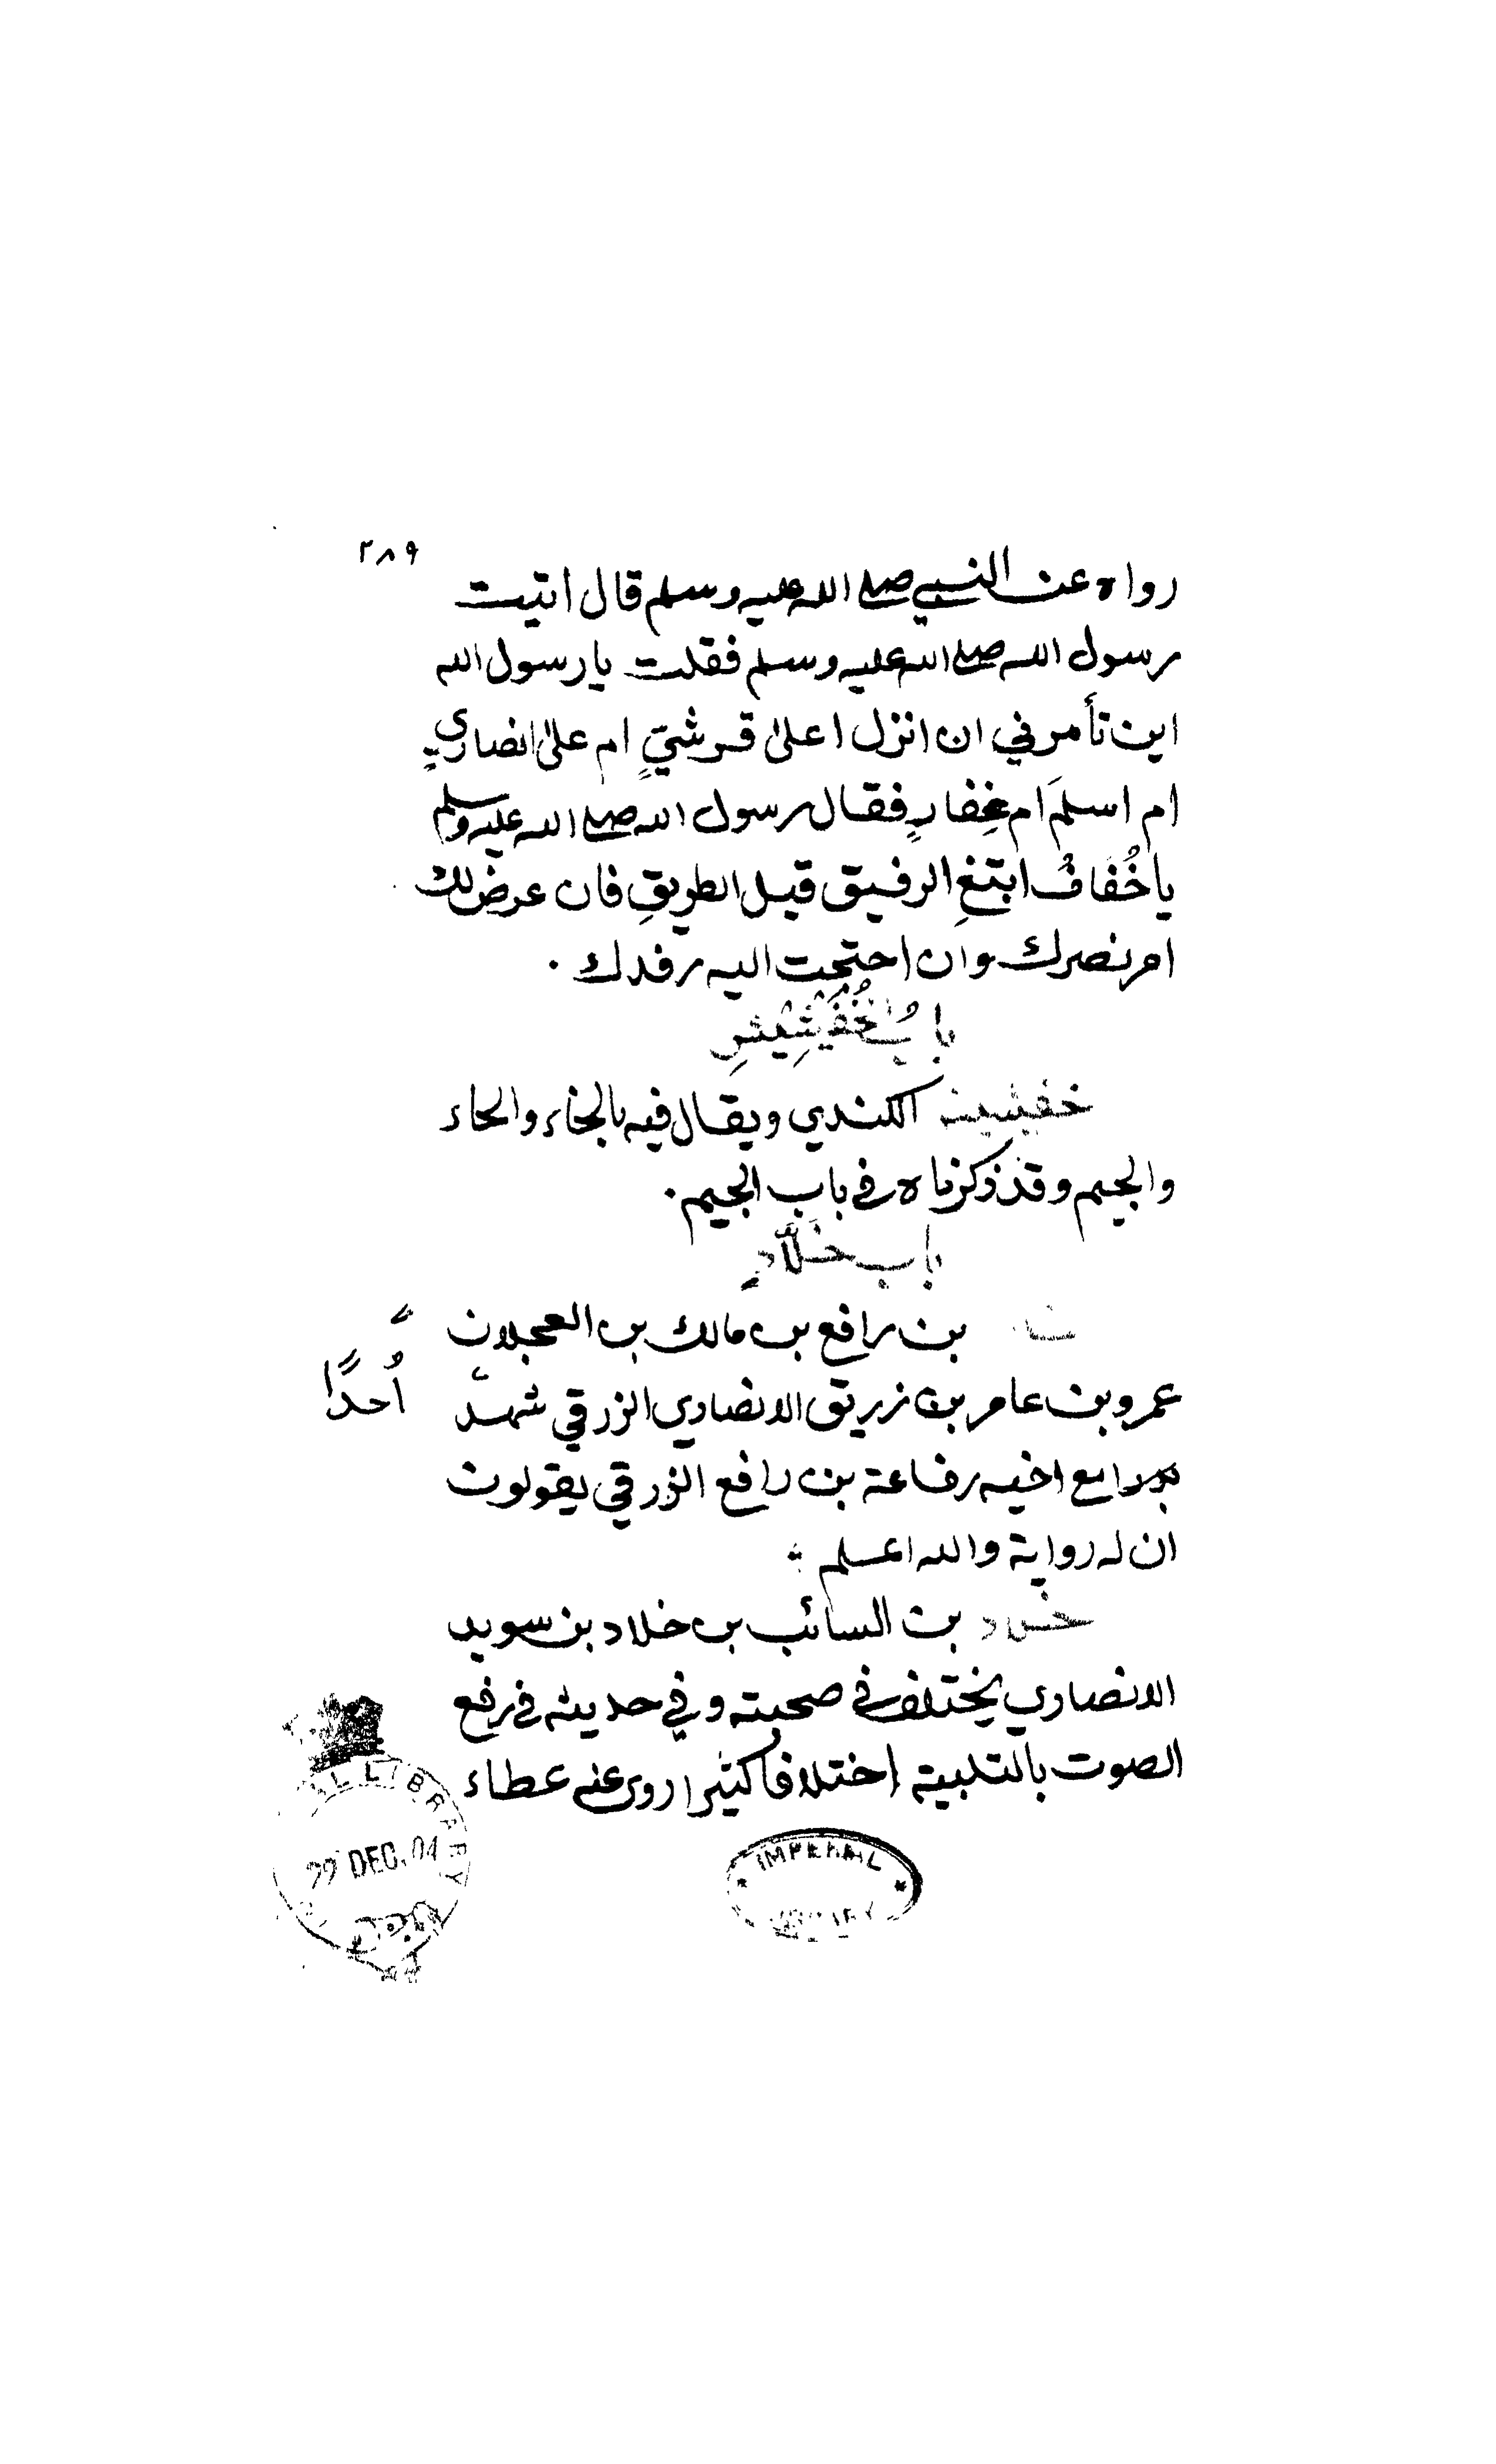 ٢٨٩
رواه عن النبي صلى الله عليه وسلم قال اتيت
رسول الله صلى الله عليه وسلم فقلت يا رسول الله
اين تأمرني ان انزل اعلى قرشيٍّ ام على انصاريٍ
ام اسلمَ ام غِفارٍ فقال رسول الله صلى الله عليه وسلم
يا خُفَافُ ابتغِ الرفيق قبل الطريقِ فان عرض لك
امر نصرك وان احتجت اليه رفدك .
بابُ خُفَيْشِيْشِ
خفيشيش الكندي ويقال فيه بالخاء والحاء
والجيم وقد ذكرناه في باب الجيم .
باب خَلَّادٍ
بن رافع بن مالك بن العجلان
عمرو بن عامر بن زريق الانصاري الزرقي شهد
أُحدًا
مع اخيه رفاعة بن رافع الزرقي يقولون
ان له رواية والله اعلم
خلاد بن السائب بن خلاد بن سويد
الانصاري يختلف في صحبته وفي حديثه في رفع
الصوت بالتلبية اختلافا كثيرا روى عنه عطاء
LIBRARY
DEC. 04
IMPERIAL